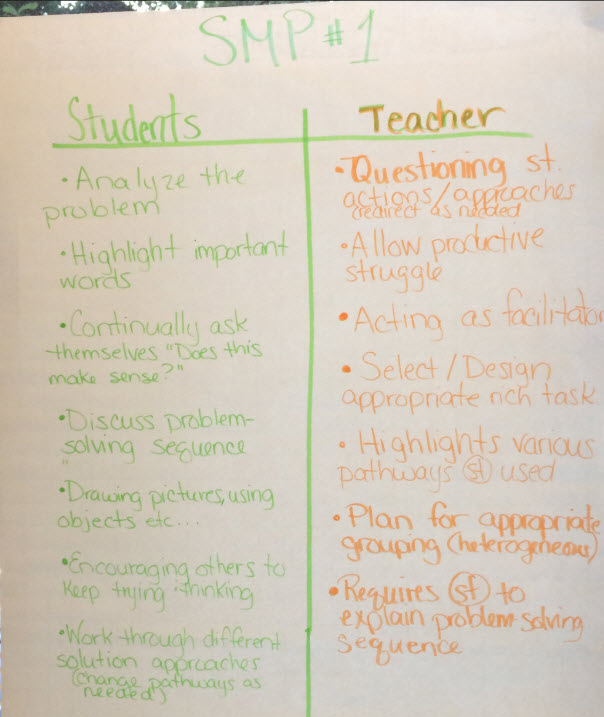 SMP #1
Students
• Analyze the
problem
• Highlight important
words
• Continually ask
themselves "Does this
make sense?"
• Discuss problem-
solving sequence
• Drawing pictures, using
objects etc...
• Encouraging others to
keep trying thinking
• Work through different
solution approaches
(change pathways as
needed)
Teacher
• Questioning st.
actions/approaches
(redirect as needed
• Allow productive
struggle
• Acting as facilitator
• Select/Design
appropriate rich task
• Highlights various
pathways st used
• Plan for appropriate
grouping (heterogeneous)
• Requires st to
explain problem solving
sequence